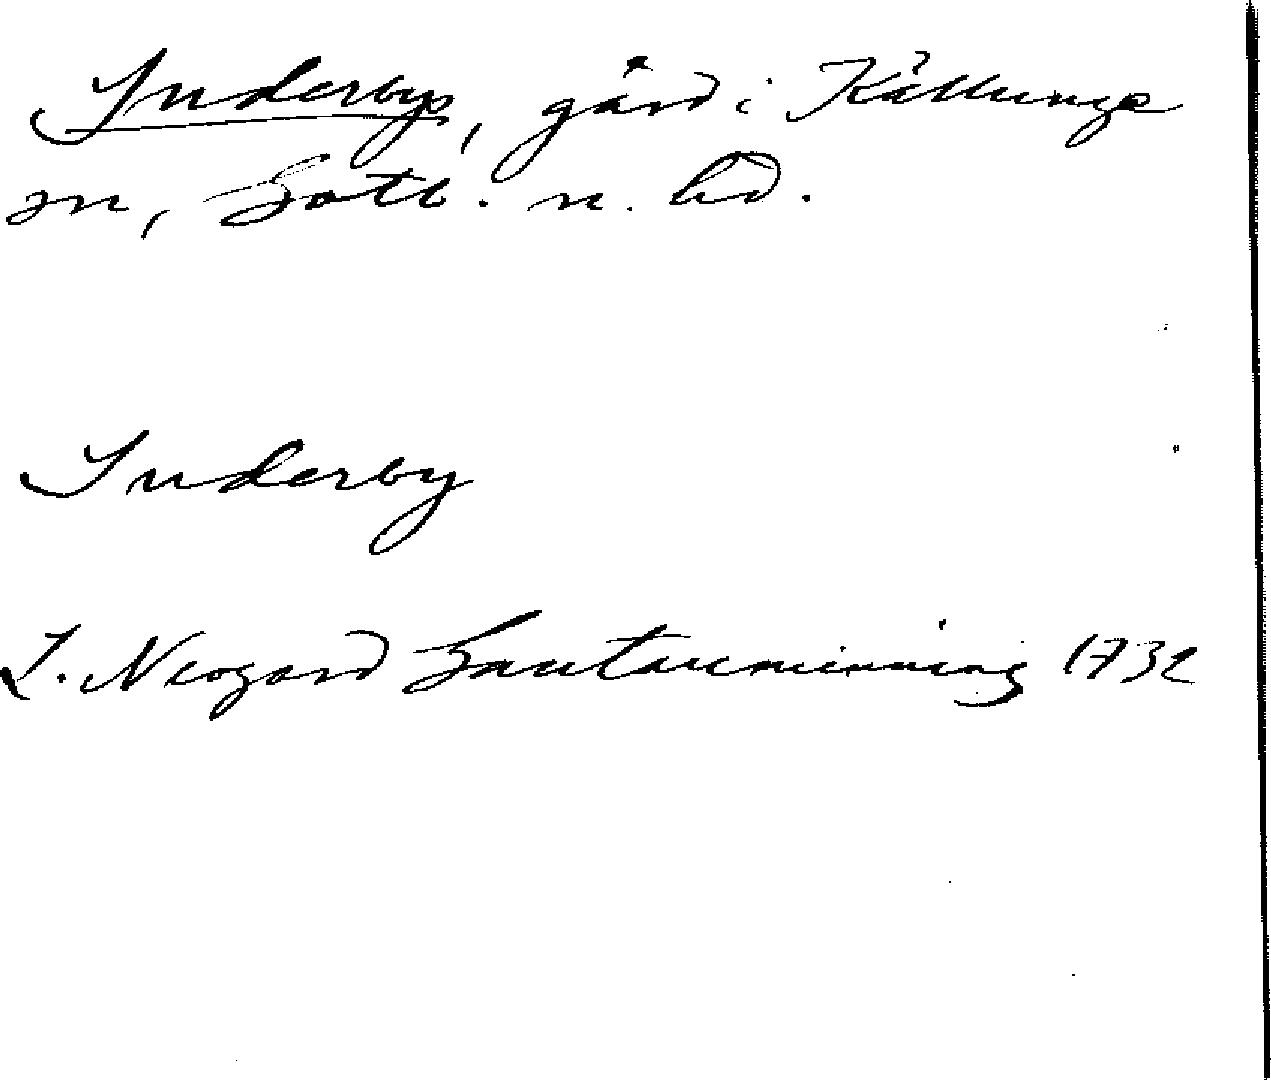 Inderbys, gård i Källunge
sn, Gotl. n. hd.
Inderby
L. Neogard Gautauminning 1732